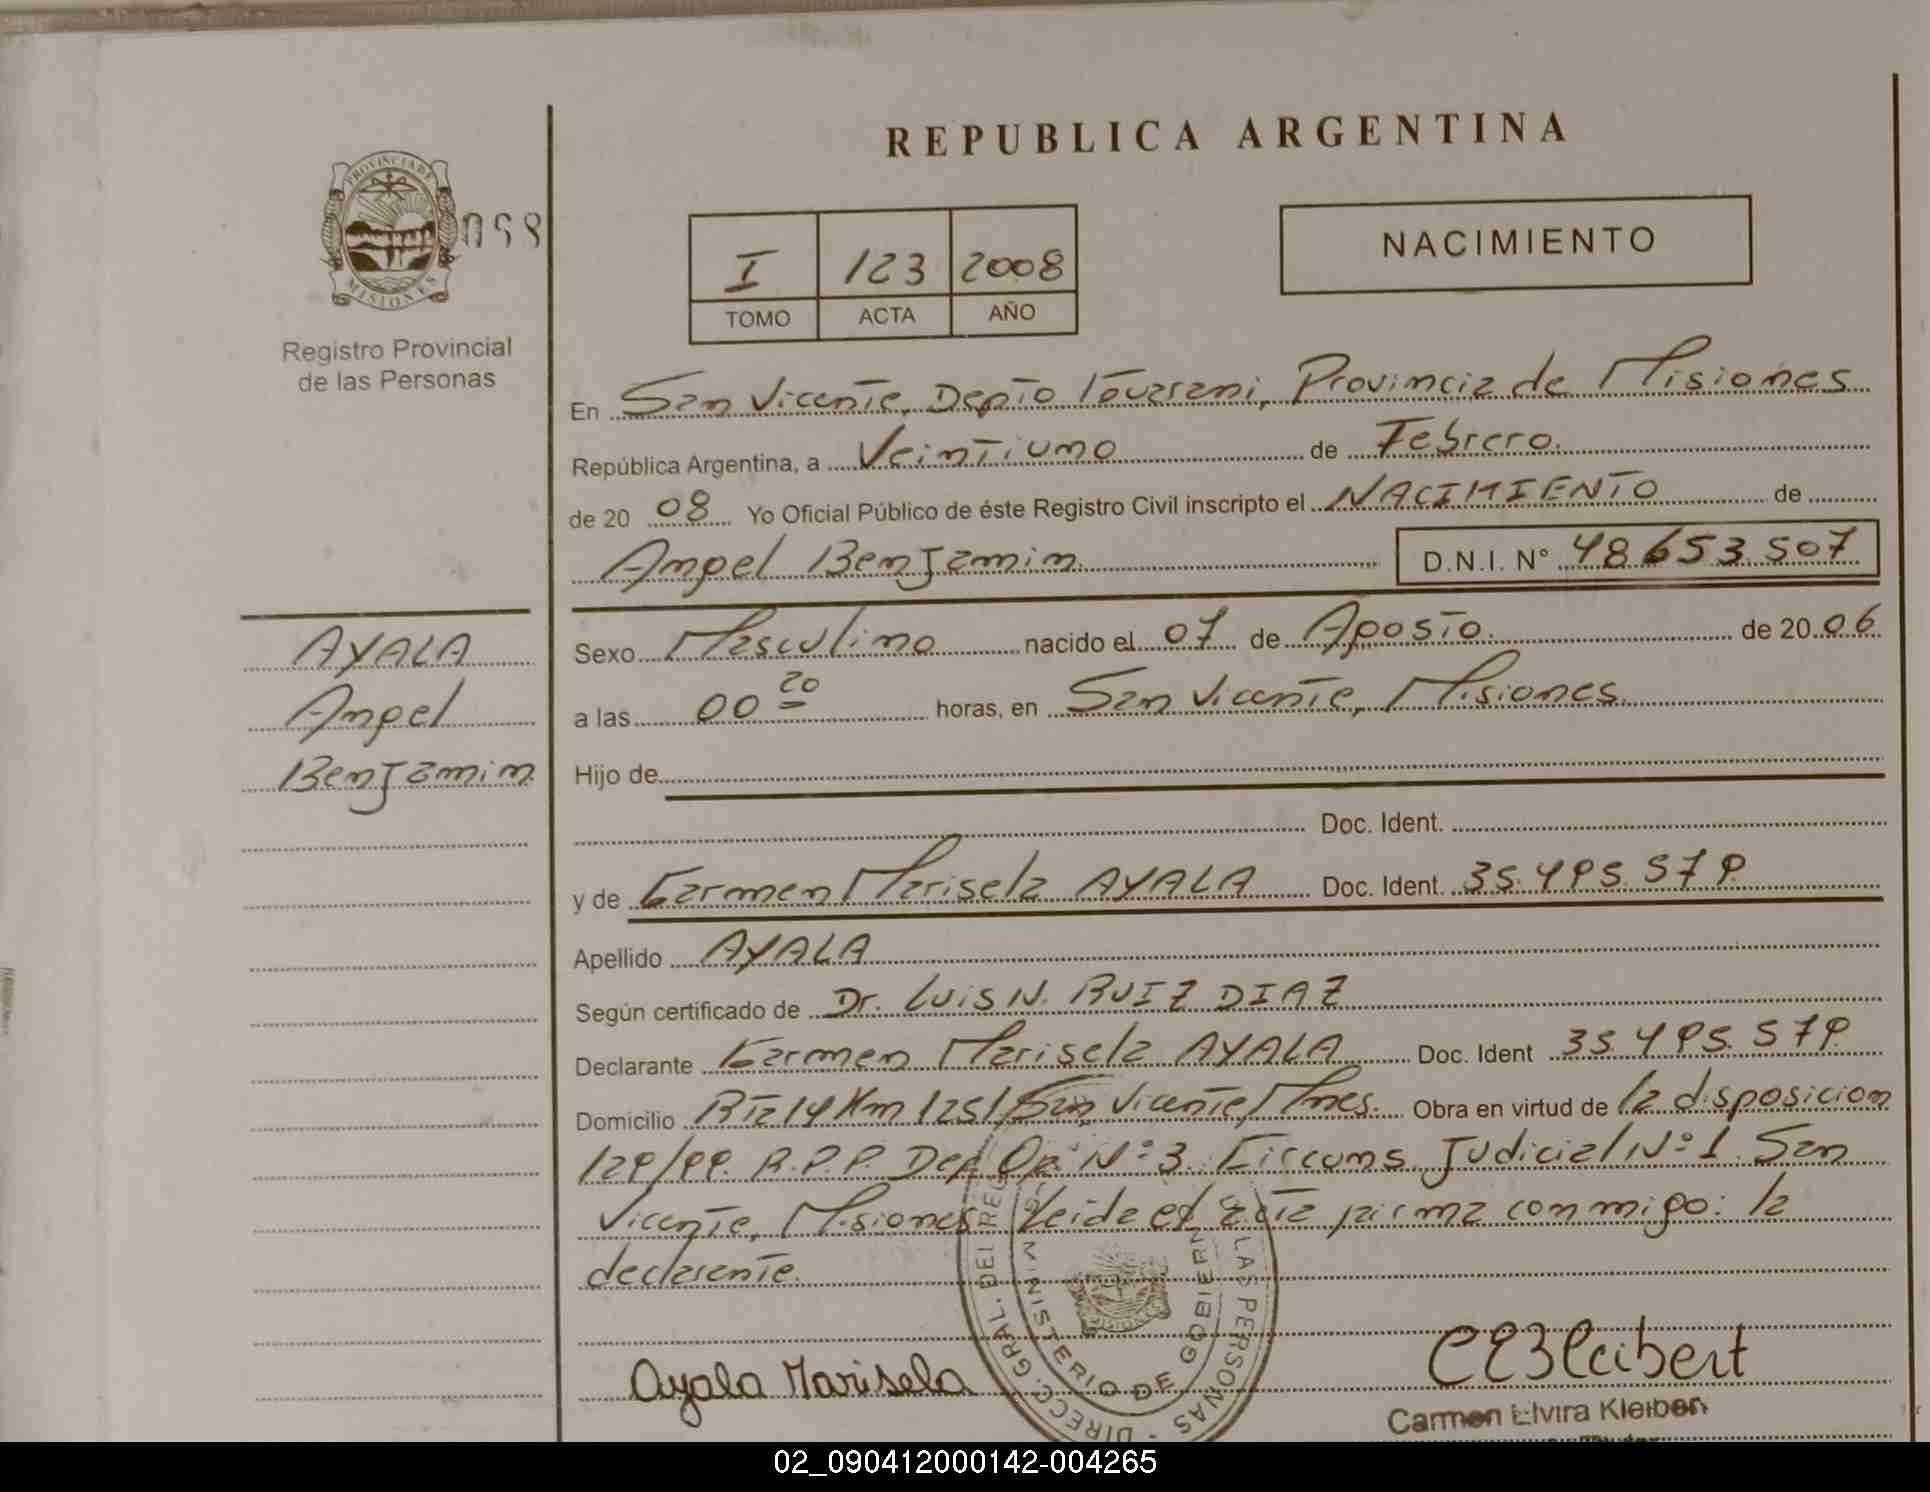 REPUBLICA ARGENTINA
PROVINCIA DE
MISIONES
068
Registro Provincial
de las Personas
I 123 2008
TOMO ACTA AÑO
NACIMIENTO
En San Vicente, Depto Guarani, Provincia de Misiones
República Argentina, a Veintiuno de Febrero.
de 20 08 Yo Oficial Público de éste Registro Civil inscripto el NACIMIENTO de
Angel Benjamin. D.N.I. Nº 48.653.507
AYALA
Angel
Benjamin
Sexo Masculino nacido el 07 de Agosto. de 20 06
a las 00 20 horas, en San Vicente, Misiones.
Hijo de
Doc. Ident.
y de Carmen Marisela AYALA Doc. Ident. 35.495.579
Apellido AYALA
Según certificado de Dr. Luis N. RUIZ DIAZ
Declarante Carmen Marisela AYALA Doc. Ident 35.495.579
Domicilio Rta 14 Km 1251 San Vicente, Mnes. Obra en virtud de la disposicion
129/99. R.P.P. Dep. Op. Nº 3. Circuns. Judicial Nº 1. San
Vicente, Misiones. Leida el acta firma conmigo: la
declarante.
DIRECC. GRAL. DEL REG LAS PERSONAS
MINISTERIO DE GOBIERN
MISIONES
Ayala Marisela
CEKleibert
Carmen Elvira Kleibert
02_090412000142-004265